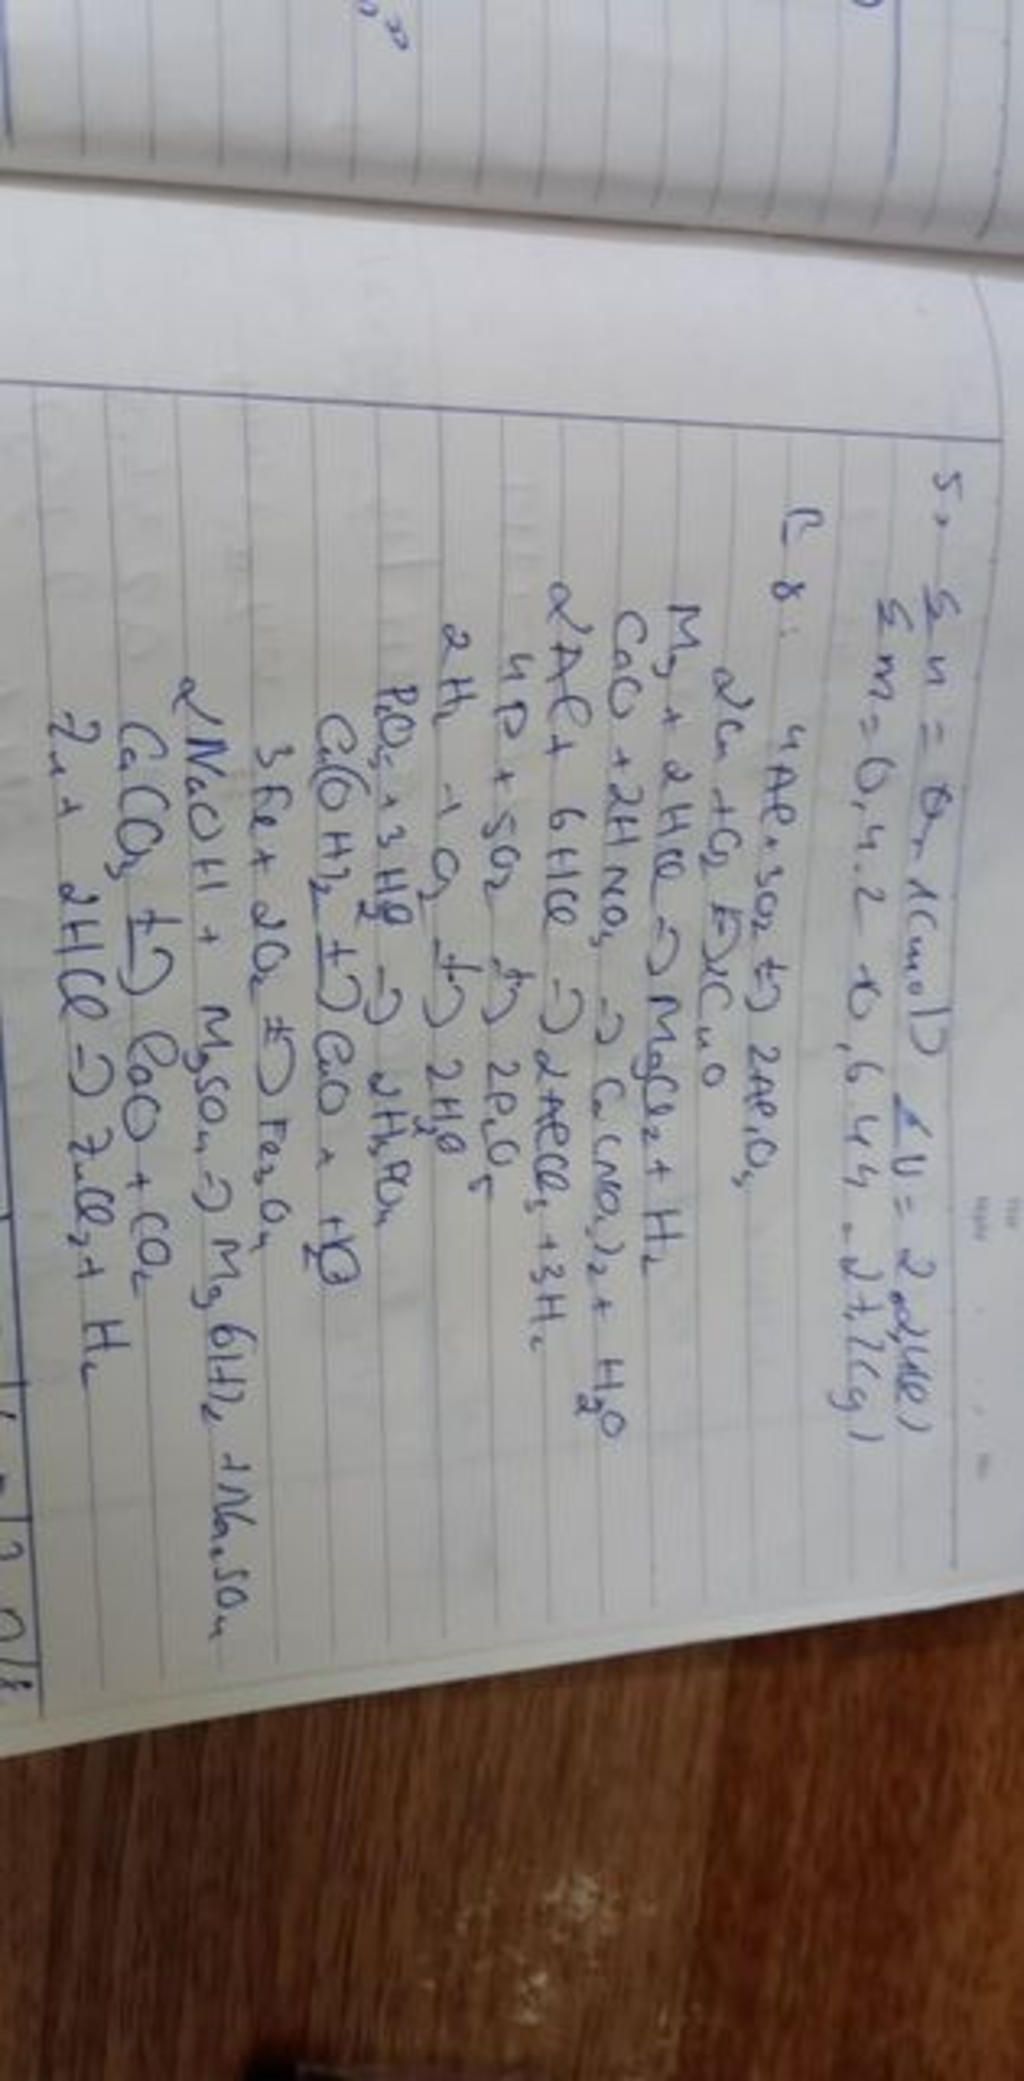 5, Σ n = 0, 1 (mol) ΣV = 2,24(l)
Σ m = 0,4.2 + 0,6.44 = 27,2(g)
B 8 :
4Al + 3O2 t-> 2Al2O3
2Cu + O2 t-> 2CuO
Mg + 2HCl -> MgCl2 + H2
CaO + 2HNO3 -> Ca(NO3)2 + H2O
2Al + 6HCl -> 2AlCl3 + 3H2
4P + 5O2 t-> 2P2O5
2H2 + O2 t-> 2H2O
P2O5 + 3H2O -> 2H3PO4
Ca(OH)2 t-> CaO + H2O
3Fe + 2O2 t-> Fe3O4
2NaOH + MgSO4 -> Mg(OH)2 + Na2SO4
CaCO3 t-> CaO + CO2
Zn + 2HCl -> ZnCl2 + H2